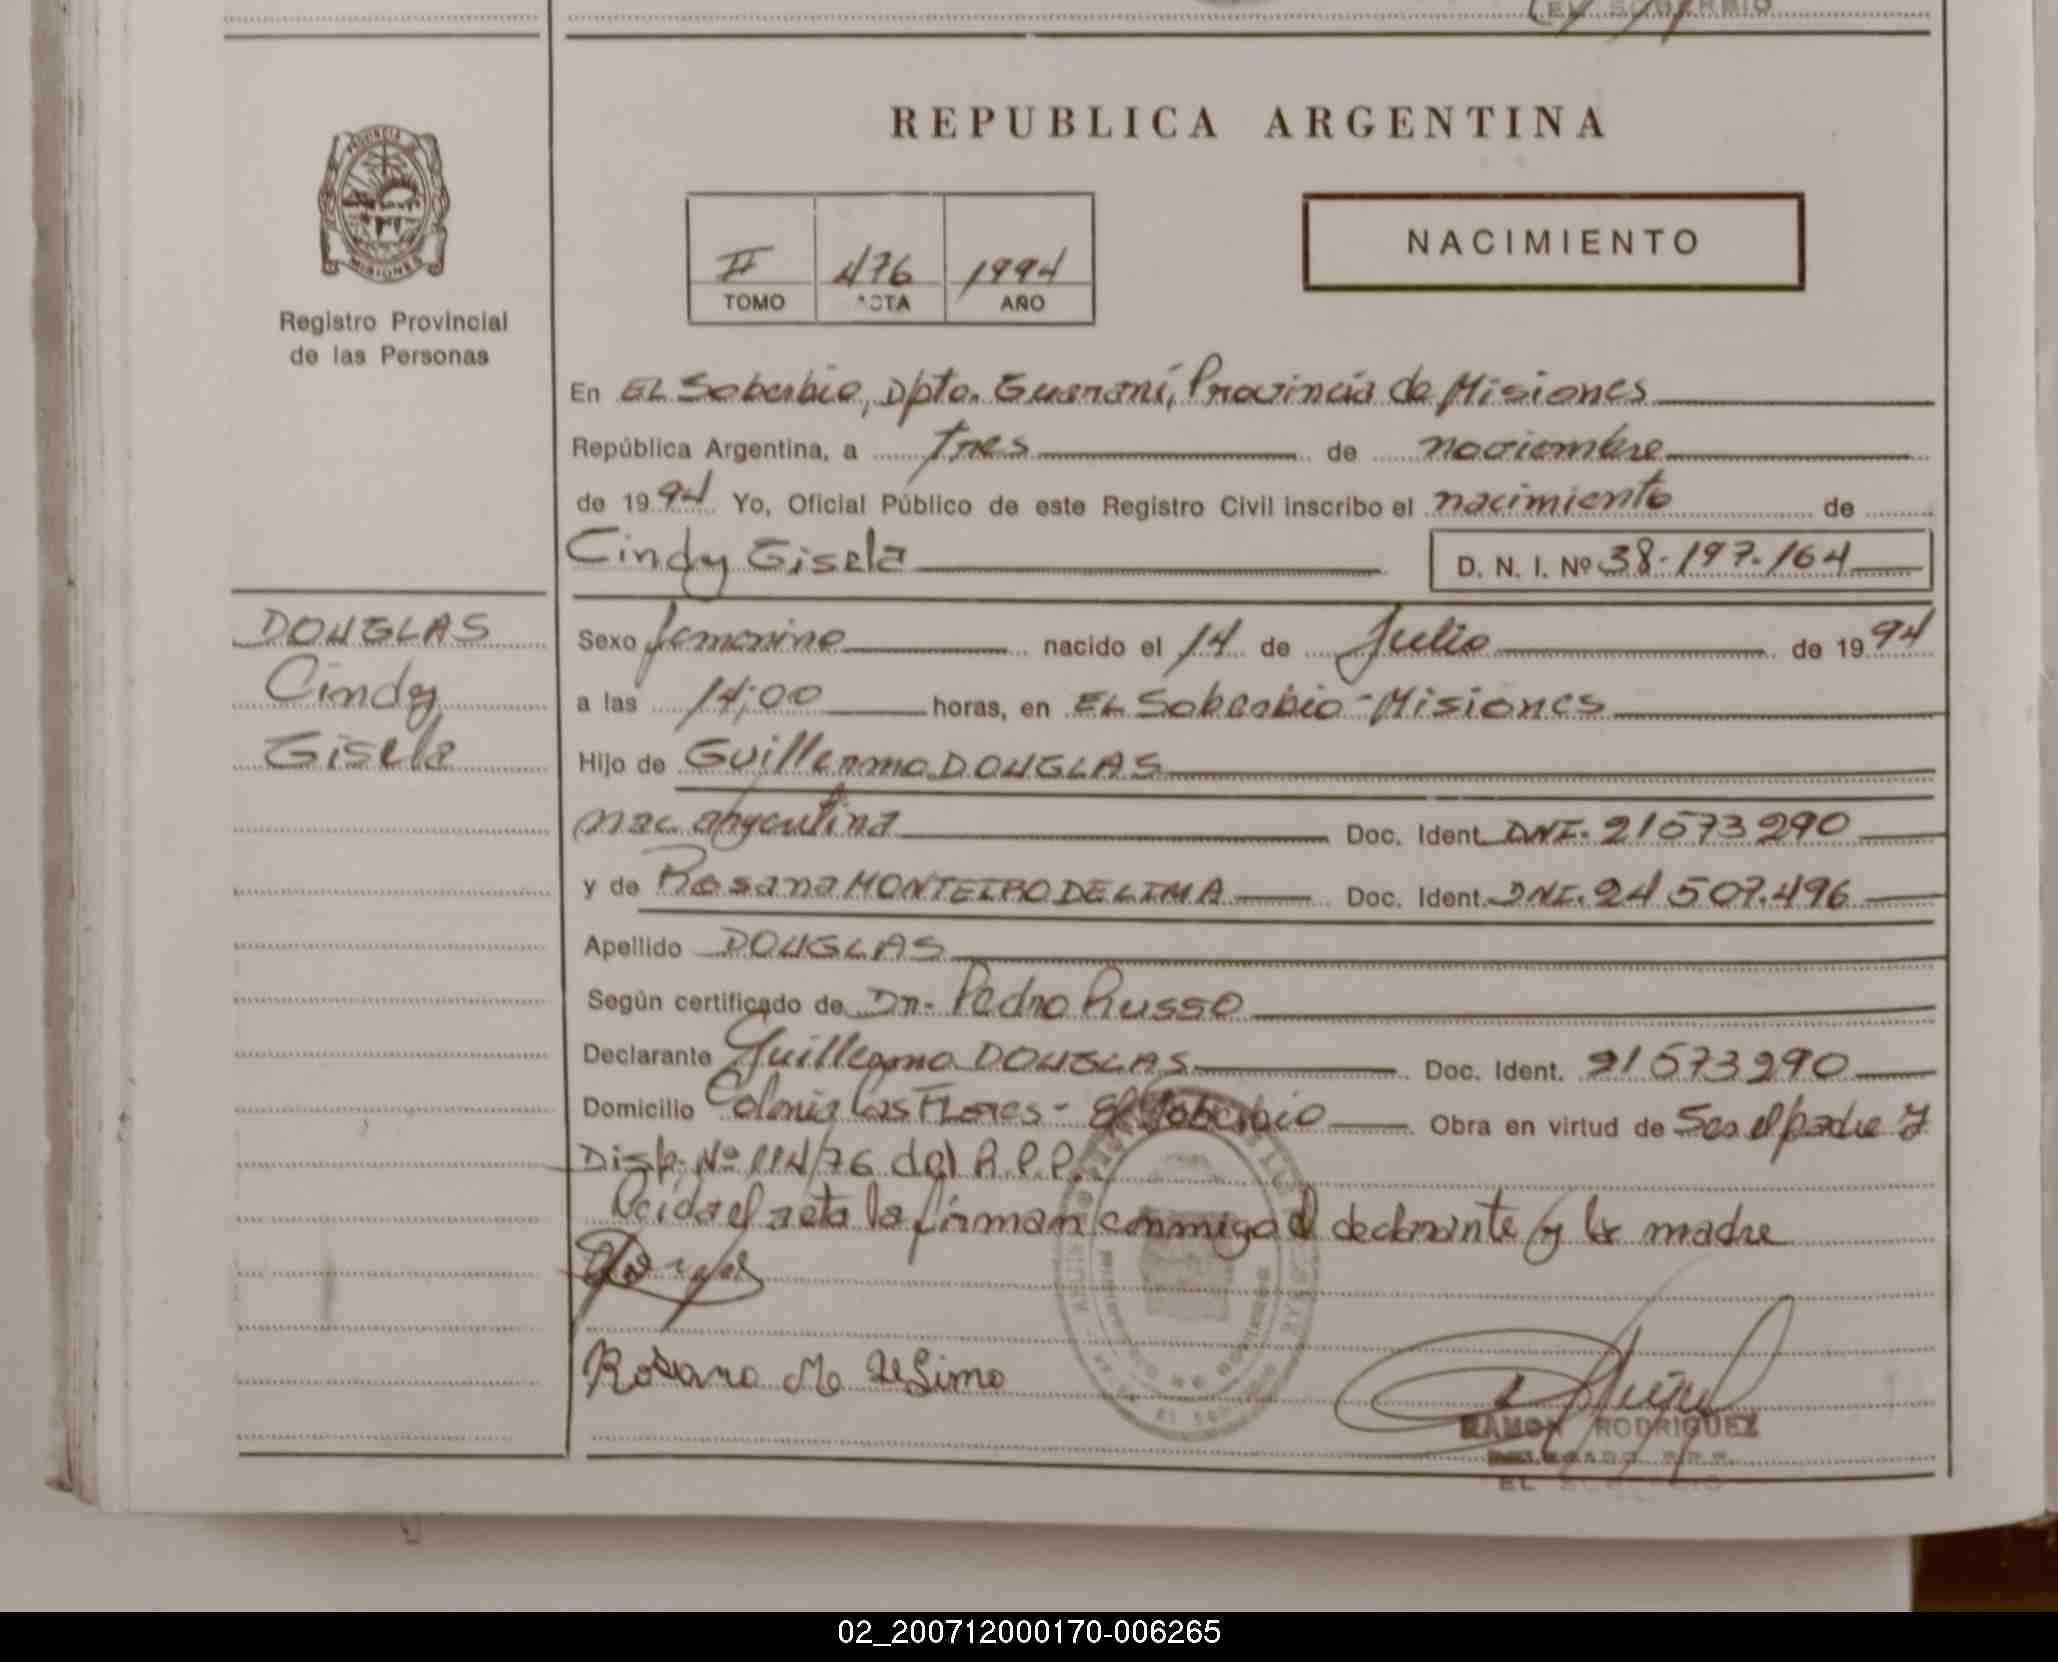 EL SOBERBIO
REPUBLICA ARGENTINA
PROVINCIA DE
MISIONES
Registro Provincial
de las Personas
NACIMIENTO
II 476 1994
TOMO ACTA AÑO
En El Soberbio, Dpto. Guaraní, Provincia de Misiones
República Argentina, a tres de noviembre
de 1994 Yo, Oficial Público de este Registro Civil inscribo el nacimiento de
Cindy Gisela D. N. I. Nº 38.197.164
DOUGLAS
Cindy
Gisela
Sexo femenino nacido el 14 de Julio de 1994
a las 14;00 horas, en El Soberbio - Misiones
Hijo de Guillermo DOUGLAS
nac argentina Doc. Ident. DNI. 21573290
y de Rosana MONTEIRO DE LIMA Doc. Ident. DNI. 24507.496
Apellido DOUGLAS
Según certificado de Dr. Pedro Russo
Declarante Guillermo DOUGLAS Doc. Ident. 21573290
Domicilio Colonia Las Flores - El Soberbio Obra en virtud de Ser el padre y
Disp. Nº 114/76 del R.P.P.
Leida el acta la firman conmigo el declarante y la madre
Rosana M De Lima
RAMON RODRIGUEZ
DELEGADO R.P.P.
EL SOBERBIO
02_200712000170-006265